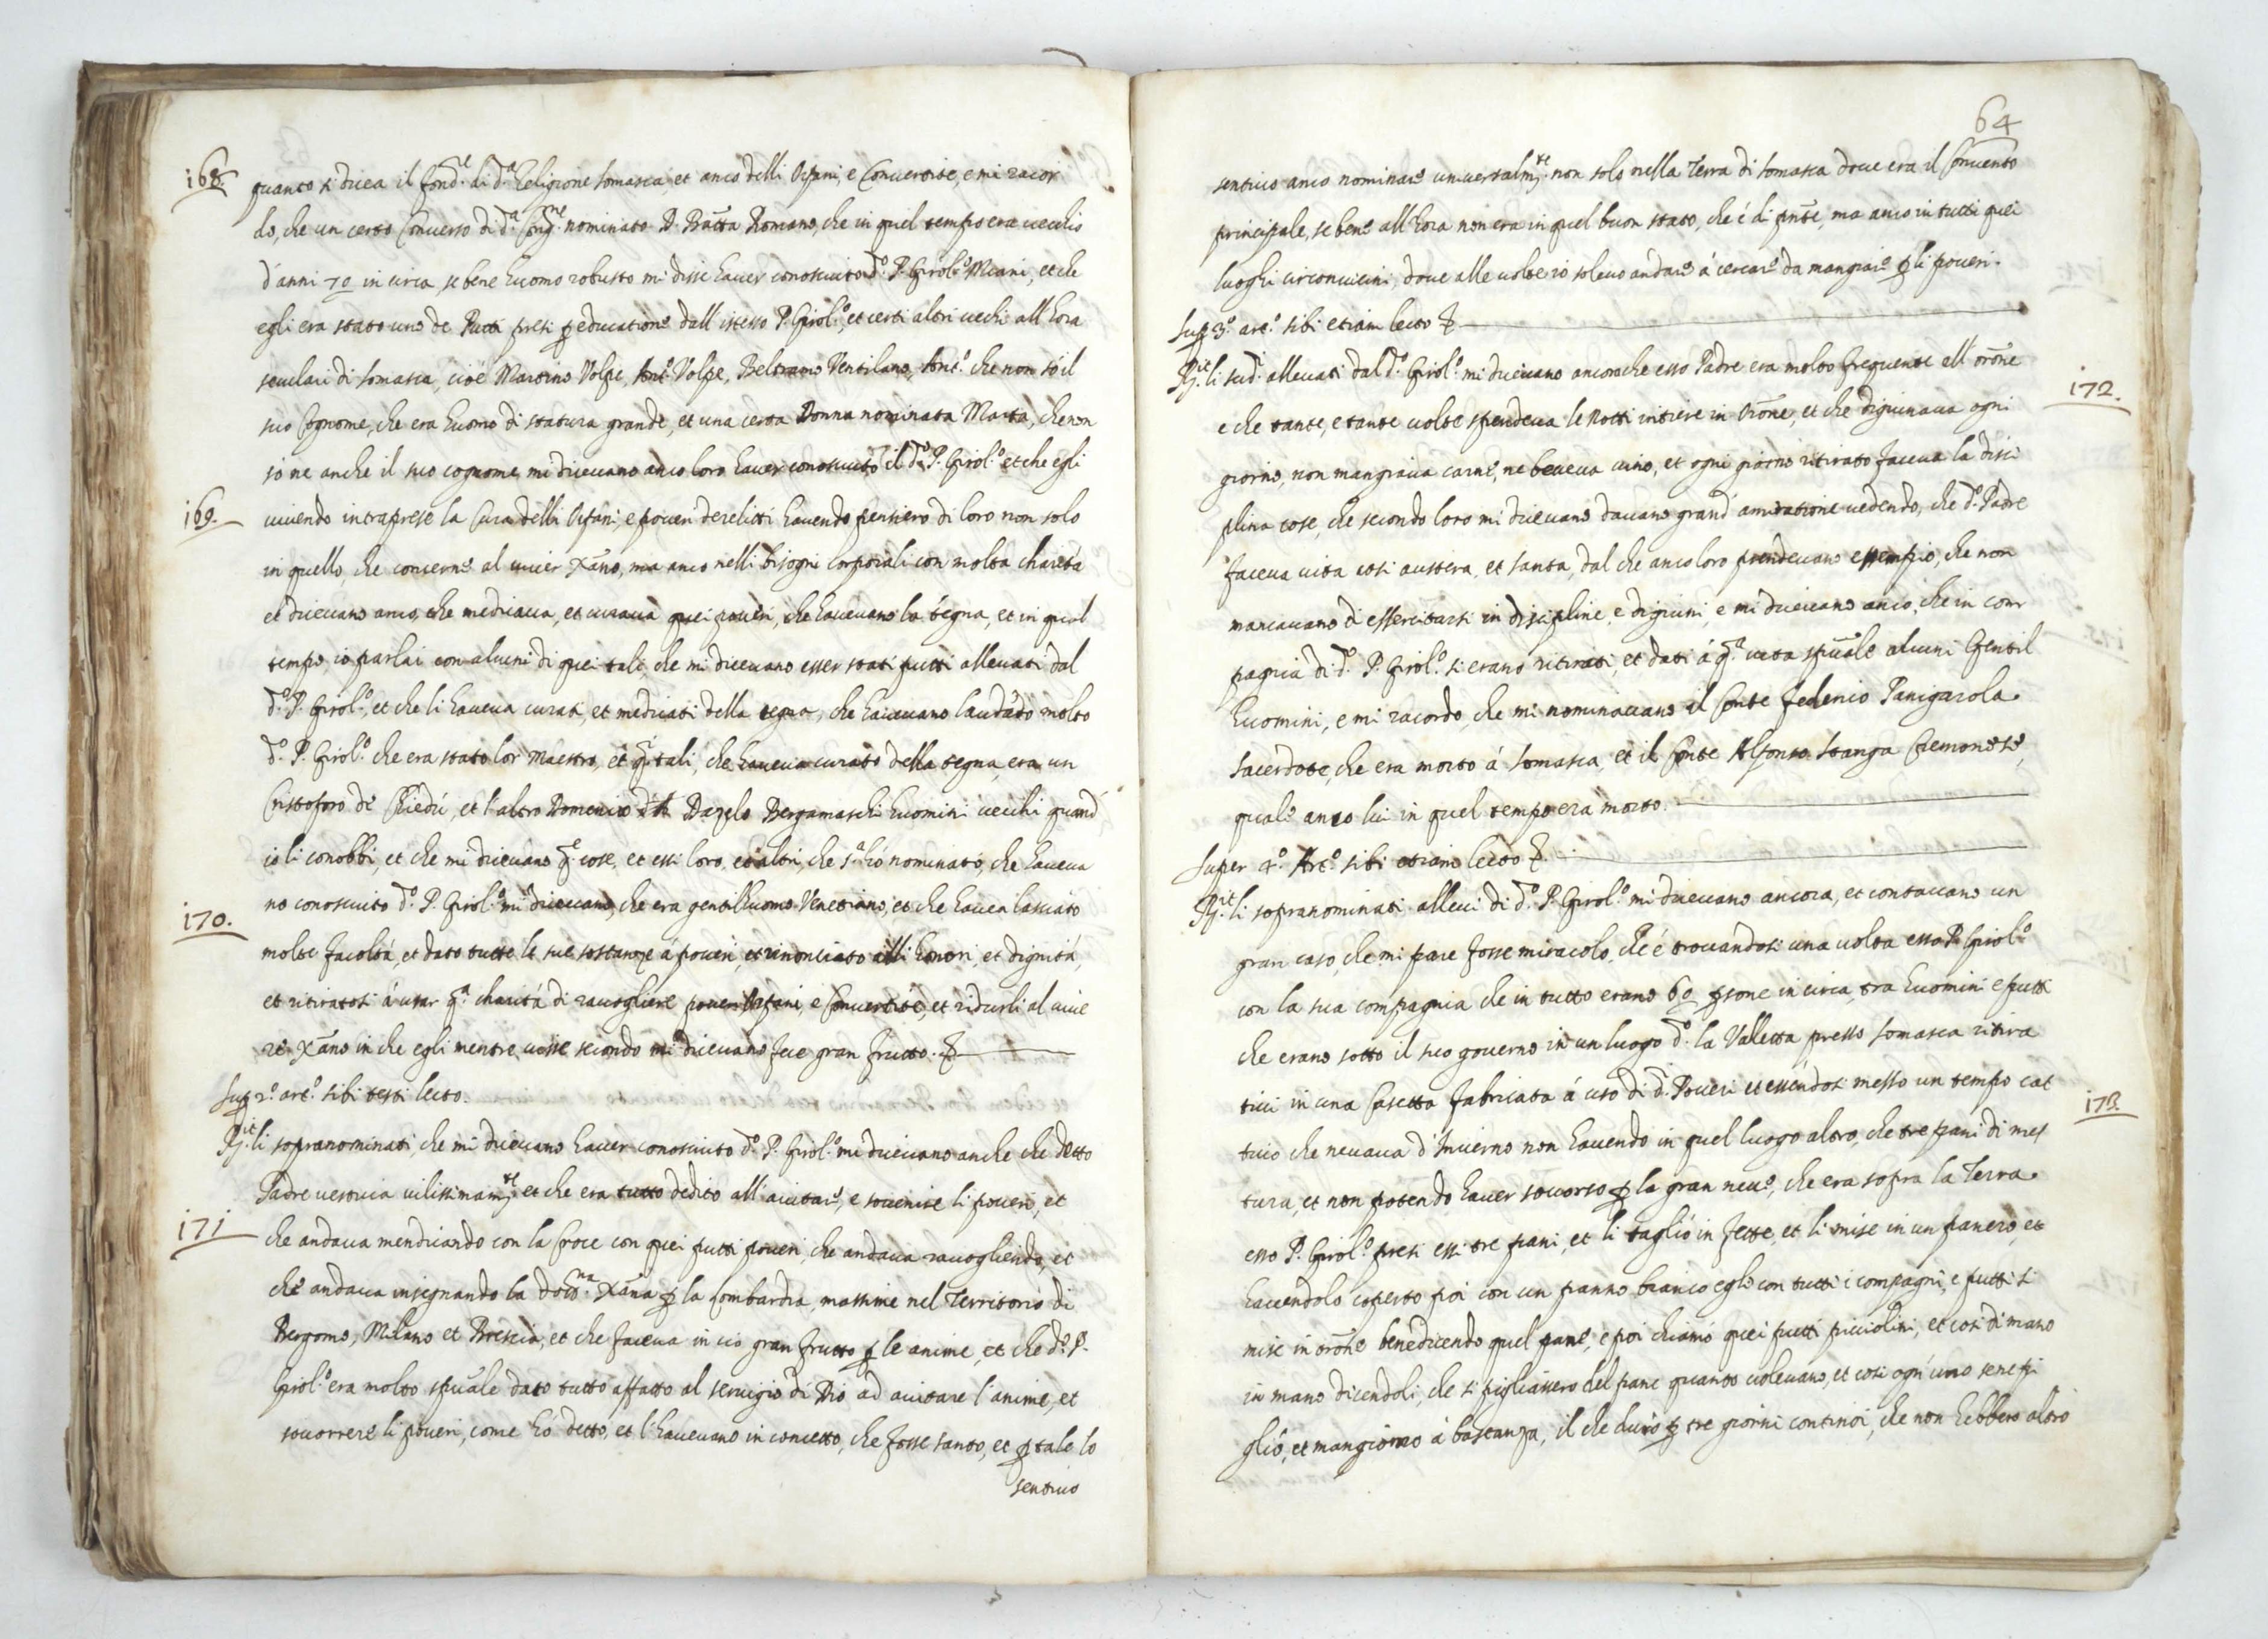 168.
quanto si dicea il fond.re di d.a Religione Somasca, et anco delli Orfani, e Convertite, e mi racor
do, che un certo Converso di d.a Cong.ne nominato P. Batta Romano, che in quel tempo era vecchio
d'anni 70 in circa, se bene huomo robusto mi disse haver conosciuto d.o P. Girol.o Miani, et che
egli era stato uno de Putti presi p educatione dall'istesso P. Girol.o, et certi altri vechi all'hora
seculari di Somasca, cioè Martino Volpe, Ant.o Volpe, Beltramo Ventilano, Ant.o che non sò il
suo Cognome, che era huomo di statura grande, et una certa Donna nominata Marta, che non
sò ne anche il suo cognome, mi dicevano anco loro haver conosciuto il d.o P. Girol.o et che egli
169.
vivendo intraprese la Cura delli Orfani, e poveri derelitti havendo pensiero di loro non solo
in quello, che concerne al viver Xāno, ma anco nelli bisogni corporali con molta charità
et dicevano anco, che medicava, et curava quei poveri, che havevano la tegna, et in quel
tempo io parlai con alcuni di quei tali, che mi dicevano esser stati putti allevati dal
d.o P. Girol.o, et che li haveva curati, et medicati della tegna, che havevano laudado molto
d.o P. Girol.o che era stato lor Maestro, et q.i tali, che haveva curato della tegna, era un
Cristoforo de Chiedù, et l'altro Domenico Dazelo Bergamaschi huomini vecchi quand'
io li conobbi, et che mi dicevano q.e cose, et essi loro, et altri, che s.a hò nominato, che haveva
170.
no conosciuto d.o P. Girol.o mi dicevano, che era gentilhuomo Venetiano, et che havea lasciato
molte facoltà, et dato tutte le sue sostanze à poveri, et rinonciato alli honori, et dignità,
et ritiratosi à usar q.a charità di racogliere poveri Orfani, e Convertite, et ridurli al vive
re Xāno in che egli mentre visse secondo mi dicevano fece gran frutto. &
Sup 2.o art.o sibi testi lecto.
R.it li sopranominati, che mi dicevano haver conosciuto d.o P. Girol.o mi dicevano anche che detto
Padre vestiva vilissimam.te et che era tutto dedito all'aiutare, e sovenire li poveri, et
171
che andava mendicando con la Croce con quei putti poveri, che andava racogliendo, et
che andava insegnando la dott.na Xāna p la Lombardia, massime nel Territorio di
Bergomo, Milano et Brescia, et che faceva in ciò gran frutto p le anime, et che d.o P.
Girol.o era molto spūale dato tutto affatto al servigio di Dio ad aiutare l'anime, et
socorrere li poveri, come hò detto, et l'havevano in concetto, che fosse santo, et p tale lo
sentivo
64
sentivo anco nominare universalm.te non solo nella Terra di Somasca dove era il Convento
principale, se bene all'hora non era in quel buon stato, che è di pñte, ma anco in tutti quei
luoghi circonvicini, dove alle volte io solevo andare à cercare da mangiare p li poveri.
Sup 3.o art.o sibi etiam lecto &
172.
R.it li sud.i allevati dal d.o Girol.o mi dicevano ancora che esso Padre era molto frequente all'orōne
e che tante, e tante volte spendeva le notti intiere in Orōne, et che digiunava ogni
giorno, non mangiava carne, ne beveva vino, et ogni giorno ritirato faceva la disci
plina cose, che secondo loro mi dicevano davano grand'amiratione vedendo, che d.o Padre
faceva vita così austera, et santa, dal che anco loro prendevano essempio, che non
mancavano di essercitarsi in discipline, e digiuni, e mi dicevano anco, che in com
pagnia di d.o P. Girol.o si erano ritirati, et dati à q.a vita spūale alcuni Gentil
huomini, e mi racordo, che mi nominavano il Conte Federico Panigarola
Sacerdote, che era morto à Somasca, et il Conte Alfonso Stanga Cremonese,
quale anco lui in quel tempo era morto.
Super 4.o Art.o sibi etiam lecto &.
R.it li sopranominati allevi di d.o P. Girol.o mi dicevano ancora, et contavano un
gran caso, che mi pare fosse miracolo, che è trovandosi una volta esso P. Girol.o
con la sua compagnia che in tutto erano 60 psone in circa, tra huomini e putti
che erano sotto il suo governo in un luogo d.o la Valletta presso Somasca ritira
173.
tivi in una Casetta fabricata à uso di d.i Poveri et essendosi messo un tempo cat
tivo che nevava d'Inverno non havendo in quel luogo altro, che tre pani di mes
tura, et non potendo haver socorso p la gran neve, che era sopra la Terra
esso P. Girol.o presi essi tre pani, et li tagliò in fette, et li mise in un panero, et
havendolo coperto poi con un panno bianco egli con tutti i compagni, e putti si
mise in orōne benedicendo quel pane, e poi chiamò quei putti picciolini, et così di mano
in mano dicendoli, che si pigliassero del pane quanto volevano, et così ogn'uno se ne pi
gliò, et mangiorno à bastanza, il che durò p tre giorni continoi, che non hebbero altro